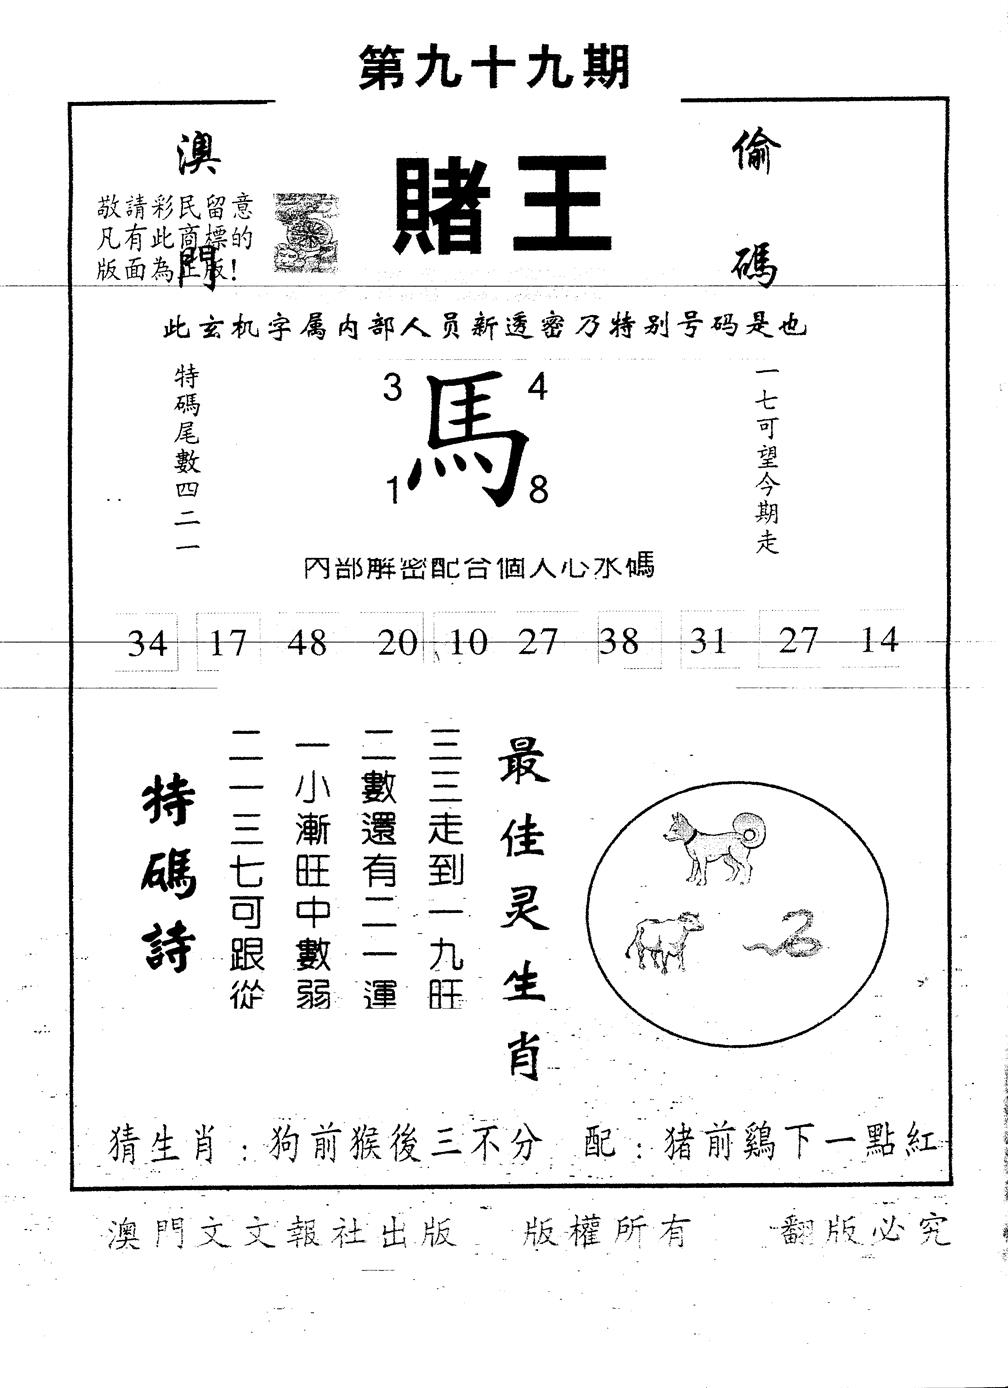 第九十九期
澳門
賭王
偷碼
敬請彩民留意
凡有此商標的
版面為正版!
此玄机字属内部人员新透密乃特别号码是也
特碼尾數四二一
3 4
馬
1 8
一七可望今期走
內部解密配合個人心水碼
34 17 48 20 10 27 38 31 27 14
最佳灵生肖
三三走到一九旺
二數還有二一運
一小漸旺中數弱
二一三七可跟從
特碼詩
猜生肖:狗前猴後三不分 配:猪前鷄下一點紅
澳門文文報社出版 版權所有 翻版必究